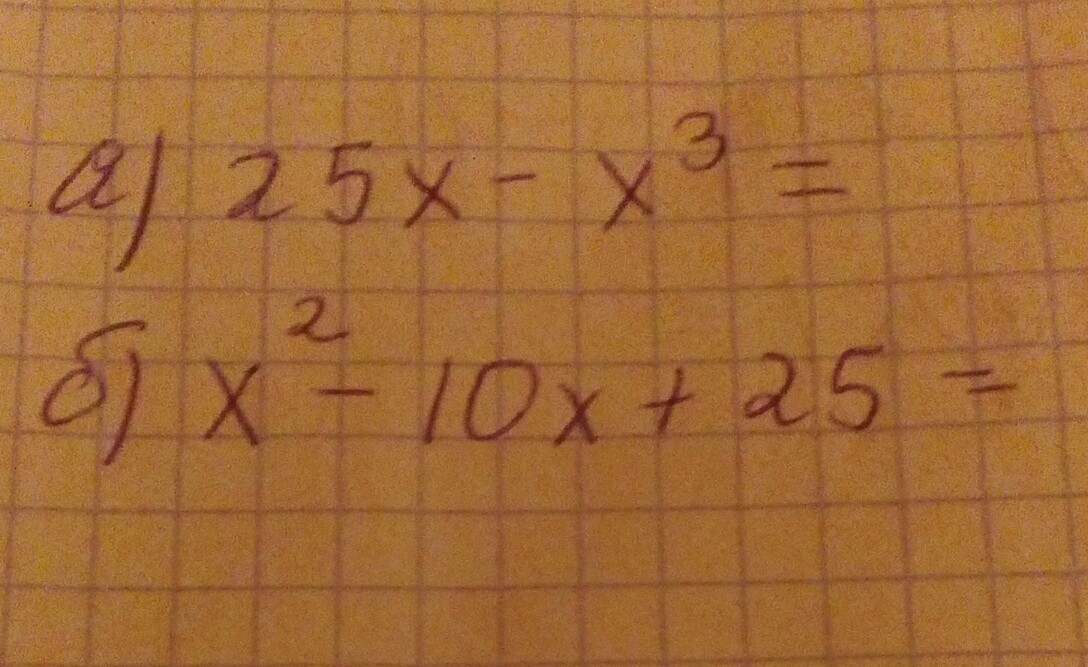 а) 25x - x³ =
б) x² - 10x + 25 =